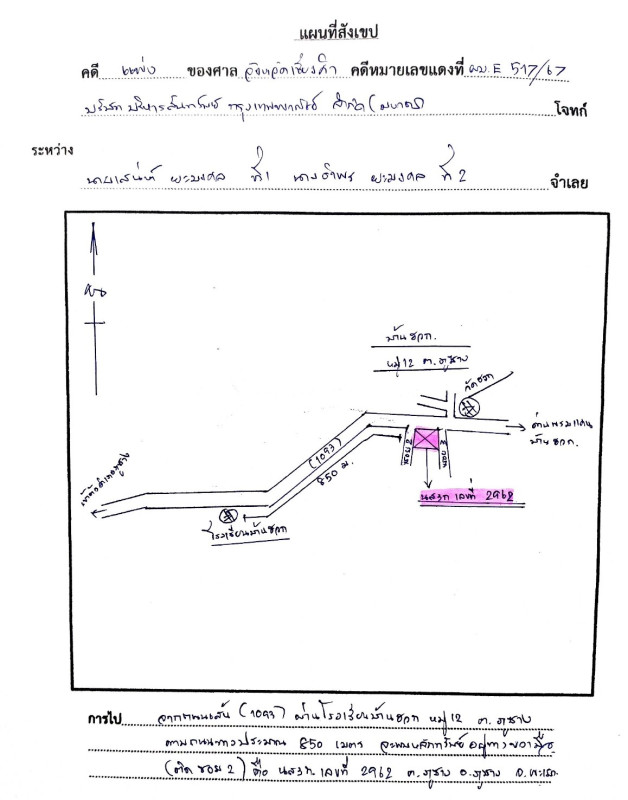 แผนที่สังเขป
คดี แพ่ง ของศาล จังหวัดเชียงคำ คดีหมายเลขแดงที่ ผบ.E 517/67
บริษัท บริหารสินทรัพย์ กรุงเทพพาณิชย์ จำกัด (มหาชน) โจทก์
ระหว่าง
นายเสน่ห์ ยะมงคล ที่ 1 นางอำพร ยะมงคล ที่ 2 จำเลย
บ้านฮวก
หมู่ 12 ต.ภูซาง
วัดฮวก
ด่านพรมแดน
บ้านฮวก
(1093)
850 ม.
ซอย 2
ซอย
นส3ก เลขที่ 2962
เข้าตัวอำเภอภูซาง
โรงเรียนบ้านฮวก
การไป จากถนนเส้น (1093) ผ่านโรงเรียนบ้านฮวก หมู่ 12 ต.ภูซาง
ตามถนนทางประมาณ 850 เมตร จะพบหลักทรัพย์อยู่ทางขวามือ
(ติด ซอย 2) คือ นส3ก เลขที่ 2962 ต.ภูซาง อ.ภูซาง จ.พะเยา